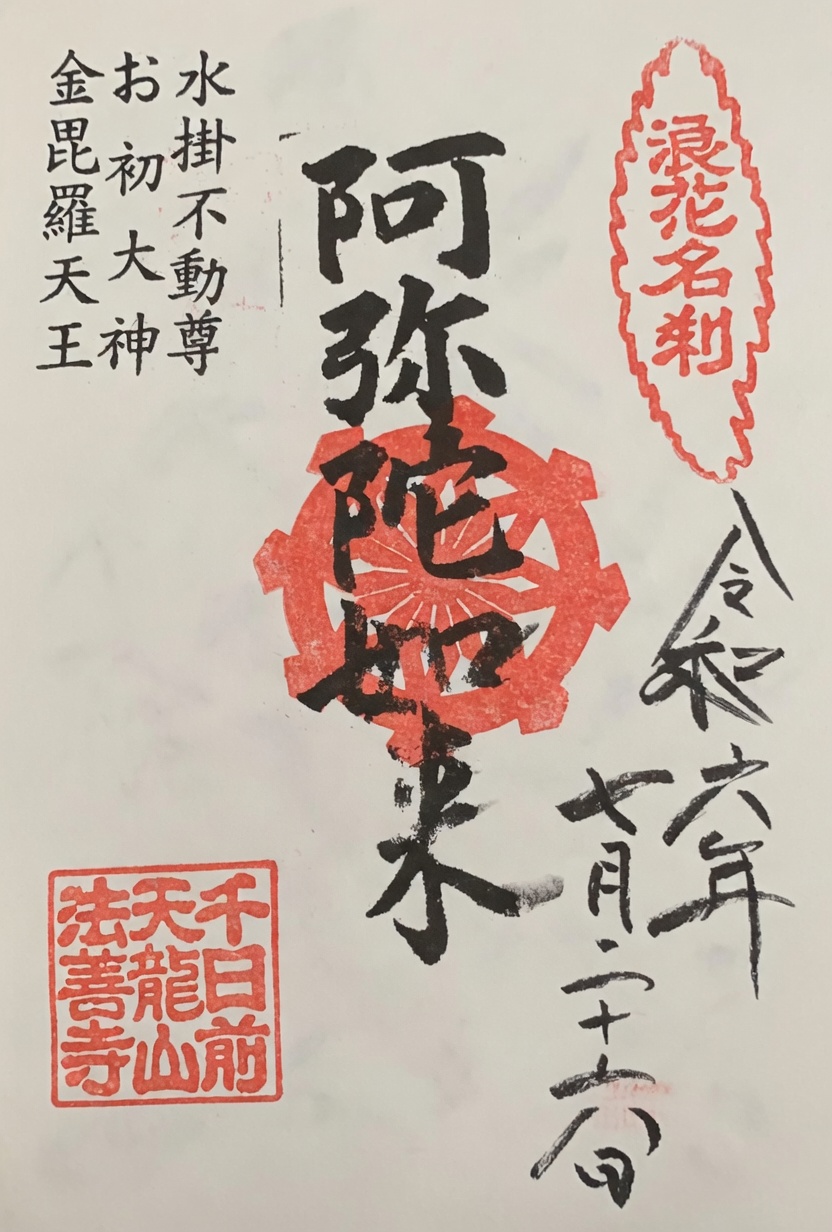 浪花名刹
令和六年
七月二十六日
阿弥陀如来
水掛不動尊
お初大神
金毘羅天王
千日前
天龍山
法善寺